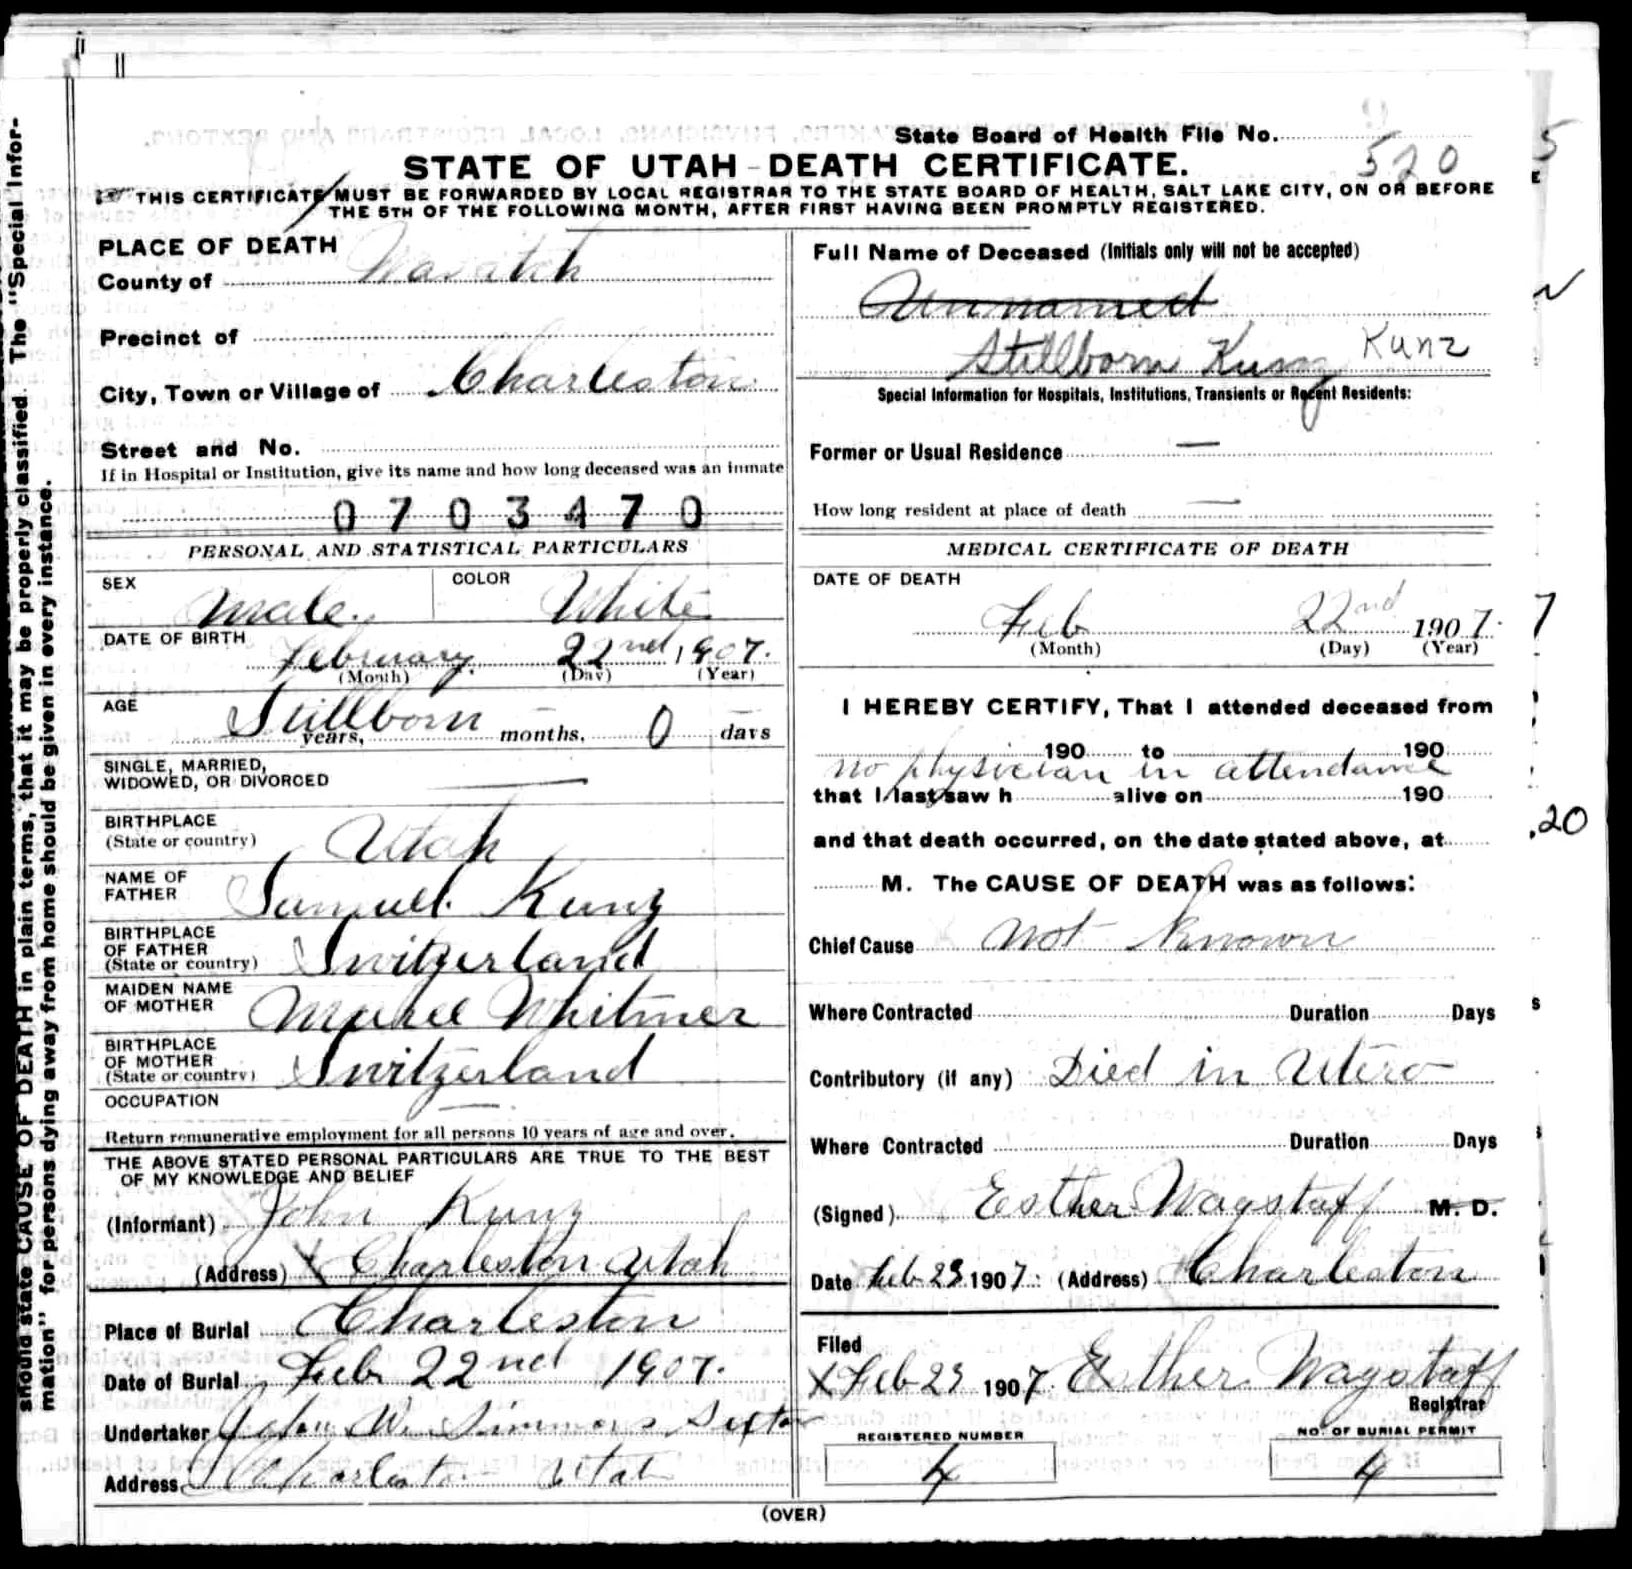 should state CAUSE OF DEATH in plain terms, that it may be properly classified. The "Special Infor-
mation" for persons dying away from home should be given in every instance.
State Board of Health File No. 520
STATE OF UTAH - DEATH CERTIFICATE.
THIS CERTIFICATE MUST BE FORWARDED BY LOCAL REGISTRAR TO THE STATE BOARD OF HEALTH, SALT LAKE CITY, ON OR BEFORE
THE 5TH OF THE FOLLOWING MONTH, AFTER FIRST HAVING BEEN PROMPTLY REGISTERED.
PLACE OF DEATH
County of Wasatch
Precinct of
City, Town or Village of Charleston
Street and No.
If in Hospital or Institution, give its name and how long deceased was an inmate
0703470
PERSONAL AND STATISTICAL PARTICULARS
SEX Male. COLOR White
DATE OF BIRTH February 22nd, 1907.
(Month) (Day) (Year)
AGE Stillborn years, — months, 0 — days
SINGLE, MARRIED,
WIDOWED, OR DIVORCED —
BIRTHPLACE
(State or country) Utah
NAME OF
FATHER Samuel Kunz
BIRTHPLACE
OF FATHER
(State or country) Switzerland
MAIDEN NAME
OF MOTHER Whitmer
BIRTHPLACE
OF MOTHER
(State or country) Switzerland
OCCUPATION —
Return remunerative employment for all persons 10 years of age and over.
THE ABOVE STATED PERSONAL PARTICULARS ARE TRUE TO THE BEST
OF MY KNOWLEDGE AND BELIEF
(Informant) John Kunz
(Address) X Charleston Utah
Place of Burial Charleston
Date of Burial Feb 22nd 1907.
Undertaker John W. Simmons Sexton
Address Charleston Utah
Full Name of Deceased (Initials only will not be accepted)
Unnamed
Stillborn Kunz Kunz
Special Information for Hospitals, Institutions, Transients or Recent Residents:
Former or Usual Residence —
How long resident at place of death —
MEDICAL CERTIFICATE OF DEATH
DATE OF DEATH
Feb 22nd 1907.
(Month) (Day) (Year)
I HEREBY CERTIFY, That I attended deceased from
190 to 190
no physician in attendance
that I last saw h alive on 190
and that death occurred, on the date stated above, at
M. The CAUSE OF DEATH was as follows:
Chief Cause Not Known
Where Contracted Duration Days
Contributory (if any) Died in Utero
Where Contracted Duration Days
(Signed) Esther Wagstaff M. D.
Date Feb 23 1907. (Address) Charleston
Filed
X Feb 23 1907. Esther Wagstaff
Registrar
REGISTERED NUMBER
4
NO. OF BURIAL PERMIT
4
(OVER)
5
7
.20